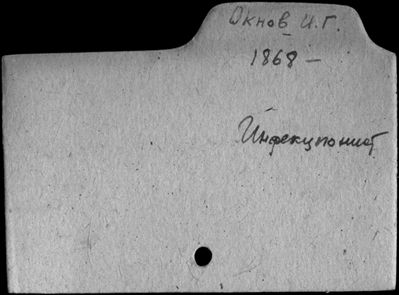 Окнов И.Г.
1868 –
Инфекционист